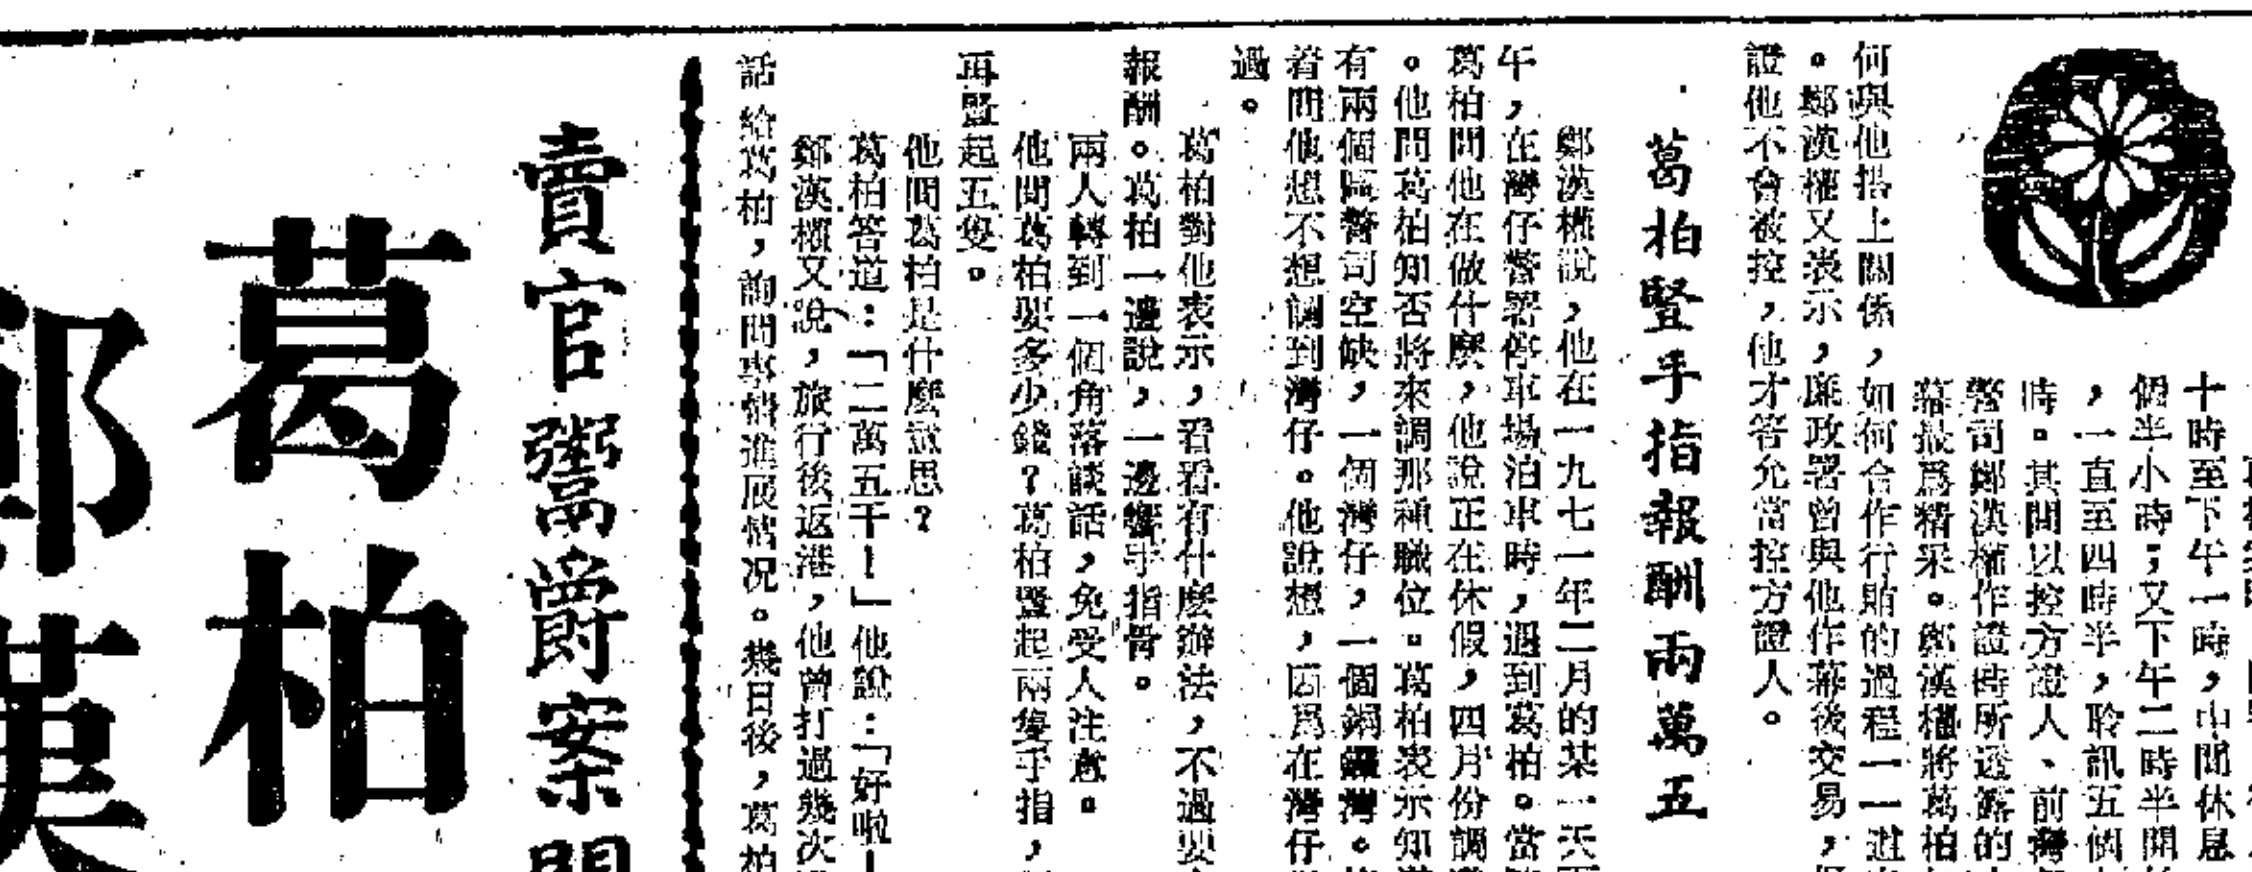 十時至下午一時，中間休息
個半小時；又下午二時半開
，一直至四時半，聆訊五個
時。其間以控方證人、前灣
警司鄭漢權作證時所透露的
幕最爲精采。鄭漢權將葛柏
何與他搭上關係，如何合作行賄的過程一一道
。鄭漢權又表示，廉政署曾與他作幕後交易，
證他不會被控，他才答允當控方證人。
葛柏豎手指報酬兩萬五
鄭漢權說，他在一九七一年二月的某一天
午，在灣仔警署停車場泊車時，遇到葛柏。當
葛柏問他在做什麽，他說正在休假，四月份調
。他問葛柏知否將來調那種職位。葛柏表示知
有兩個區警司空缺，一個灣仔，一個銅鑼灣。
着問他想不想調到灣仔。他說想，因爲在灣仔
過。
葛柏對他表示，看看有什麽辦法，不過要
報酬。葛柏一邊說，一邊響手指骨。
兩人轉到一個角落談話，免受人注意。
他問葛柏要多少錢？葛柏豎起兩隻手指，
再豎起五隻。
他問葛柏是什麽意思？
葛柏答道：「二萬五千！」他說：「好啦！
鄭漢權又說，旅行後返港，他曾打過幾次
話給葛柏，詢問事情進展情况。幾日後，葛柏
賣官鬻爵案開
葛柏
鄭漢